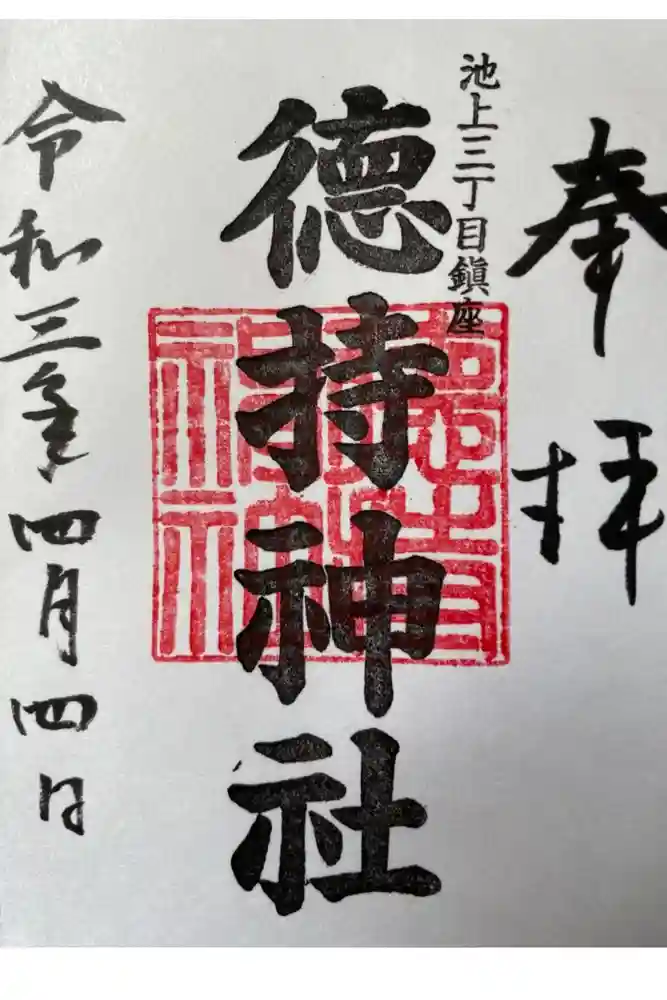 奉拝
池上三丁目鎮座
徳持神社
令和三年四月四日